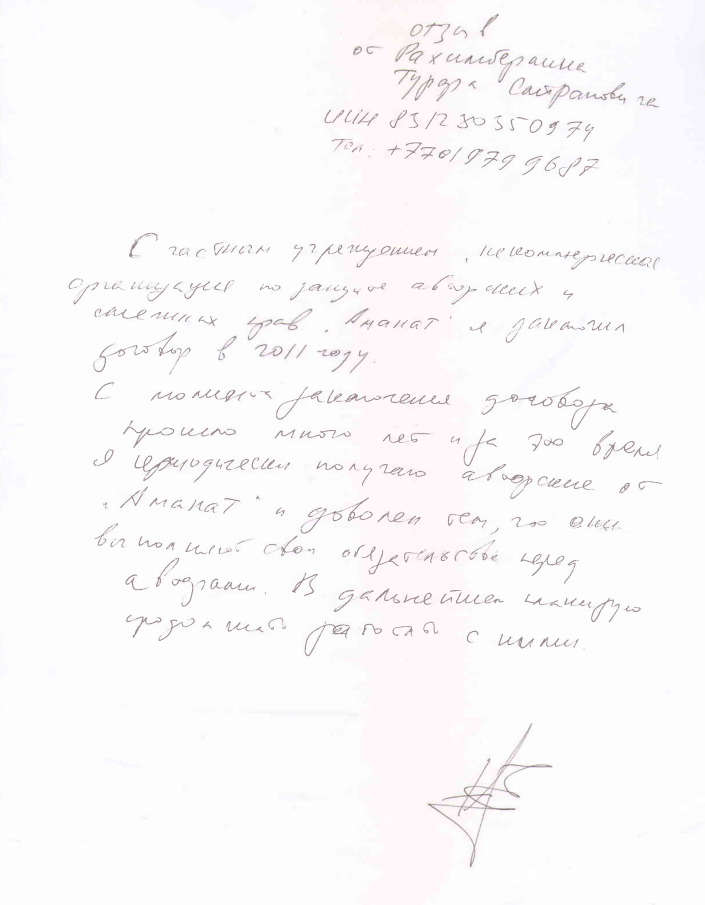 отзыв
от Рахимбераина
Турара Сатрановича
ИИН 831230350974
Тел: +77019799687
С частным учреждением „некоммерческая
организация по защите авторских и
смежных прав „Аманат" я заключил
договор в 2011 году.
С момента заключения договора
прошло много лет и за это время
я периодически получаю авторские от
„Аманат" и доволен тем, что они
выполняют свои обязательства перед
авторами. В дальнейшем планирую
продолжать работать с ними.